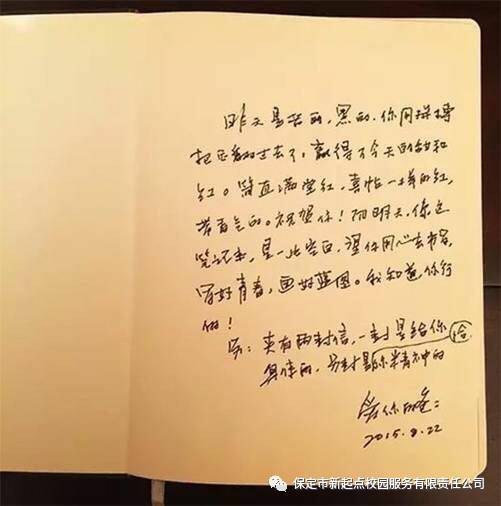 昨天是苦的,黑的,你用拼搏
把它翻过去了,赢得了今天的甜和
红。简直满堂红,喜帖一样的红,
祝贺你!而明天,像这
笔记本,是一片空白,望你用心去书写,
写好青春,画好蓝图。我知道你行
的!
另:夹有两封信,一封是给你
具体的,另封是你精神的
爱你的爸:
2015.8.22
保定市新起点校园服务有限责任公司